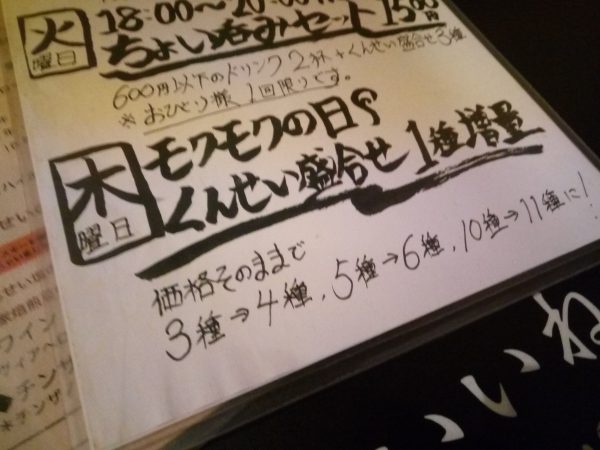 火曜日
18:00〜20:00
ちょい呑みセット 1500円
600円以下のドリンク2杯+くんせい盛合せ3種
※おひとり様1回限りです。
木曜日
モクモクの日
くんせい盛合せ1種増量
価格そのままで
3種→4種、5種→6種、10種→11種に!
ワイン
チンザ
*チンザ
いいね